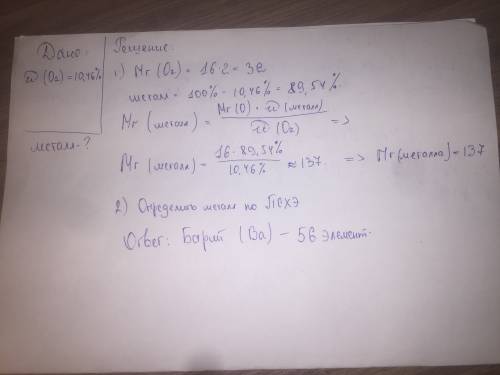 Дано:
ω (O₂) = 10,46%
металл - ?
Решение:
1) Mr (O₂) = 16·2 = 32
металл = 100% - 10,46% = 89,54%.
Mr (металл) = Mr(O) · ω (металл) / ω (O₂) =>
Mr (металл) = 16 · 89,54% / 10,46% ≈ 137. => Mr (металла) = 137
2) Определить металл по ПСХЭ
Ответ: Барий (Ba) - 56 элемент.